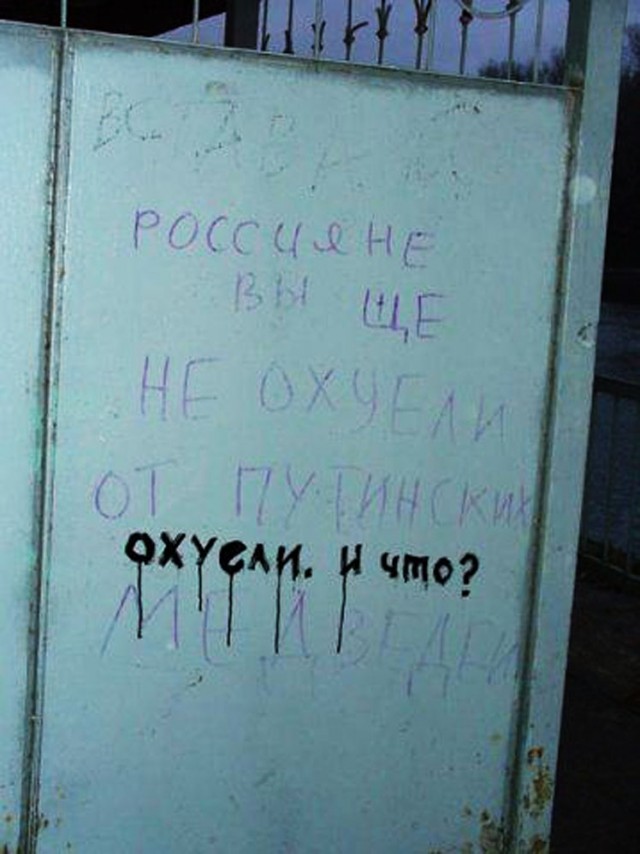 РОССИЯНЕ
ВЫ ЩЕ
НЕ ОХУЕЛИ
ОТ ПУТИНСКИХ
ОХУЕЛИ. И ЧТО?
МЕДВЕДЕЙ